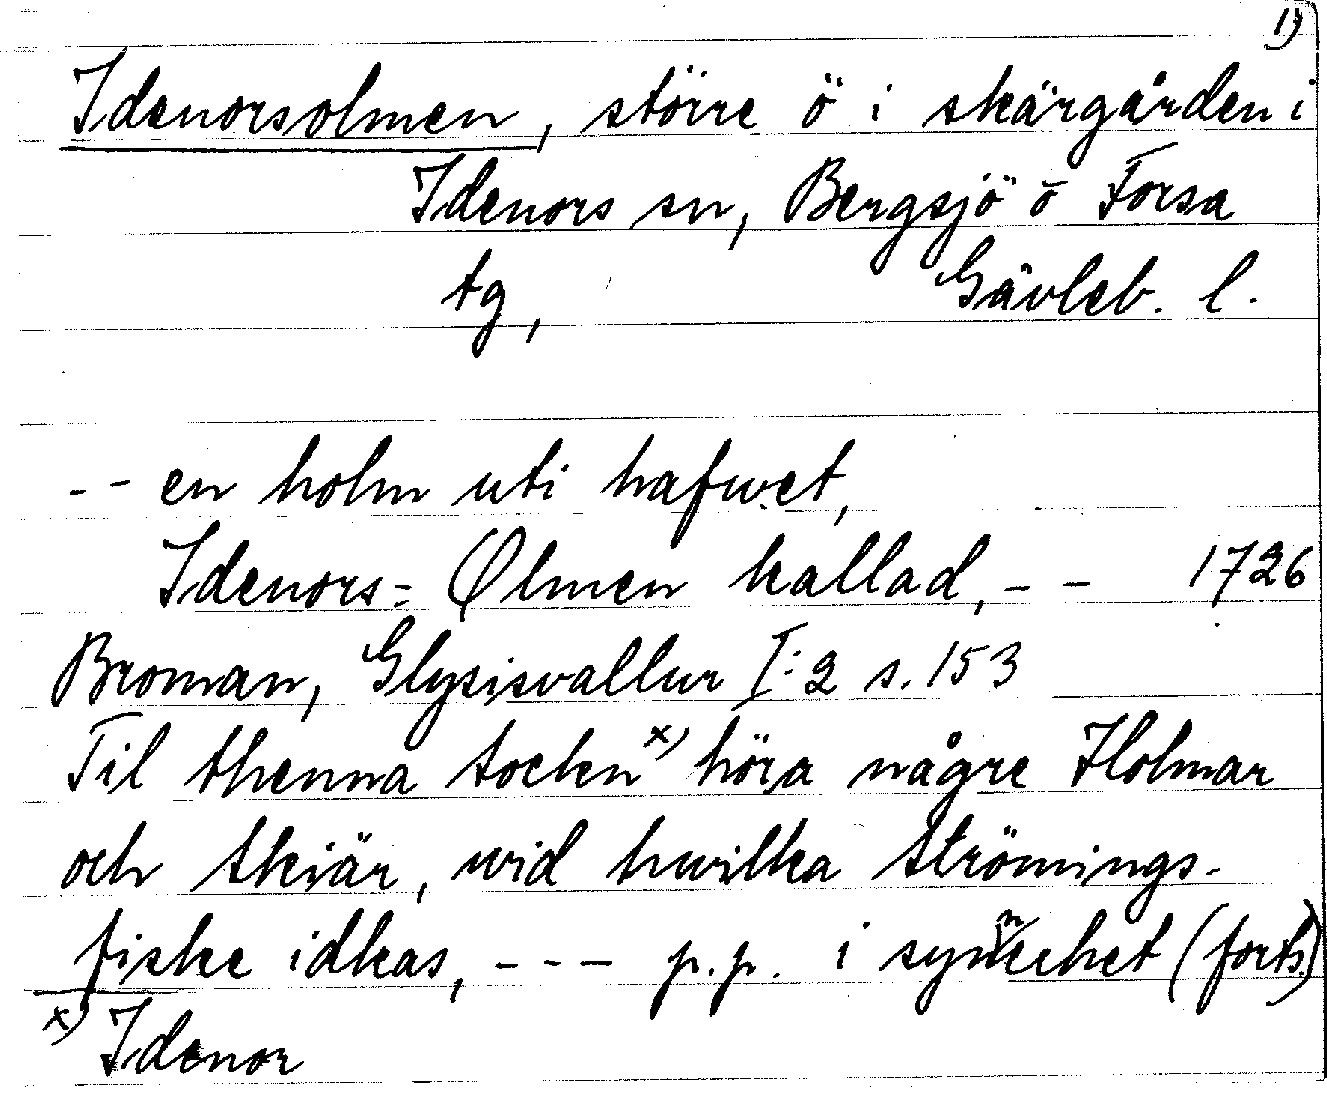 1)
Idenorsolmen, större ö i skärgården i
Idenors sn, Bergsjö o Forsa
tg, Gävleb. l.
-- en holm uti hafwet,
Idenors= Ølmen kallad, -- 1726
Broman, Glysisvallur I:2 s. 153
Til thenna socken x) höra någre Holmar
och skiär, wid hwilka strömings-
fiske idkas, --- p.p. i synnerhet (forts.)
x) Idenor